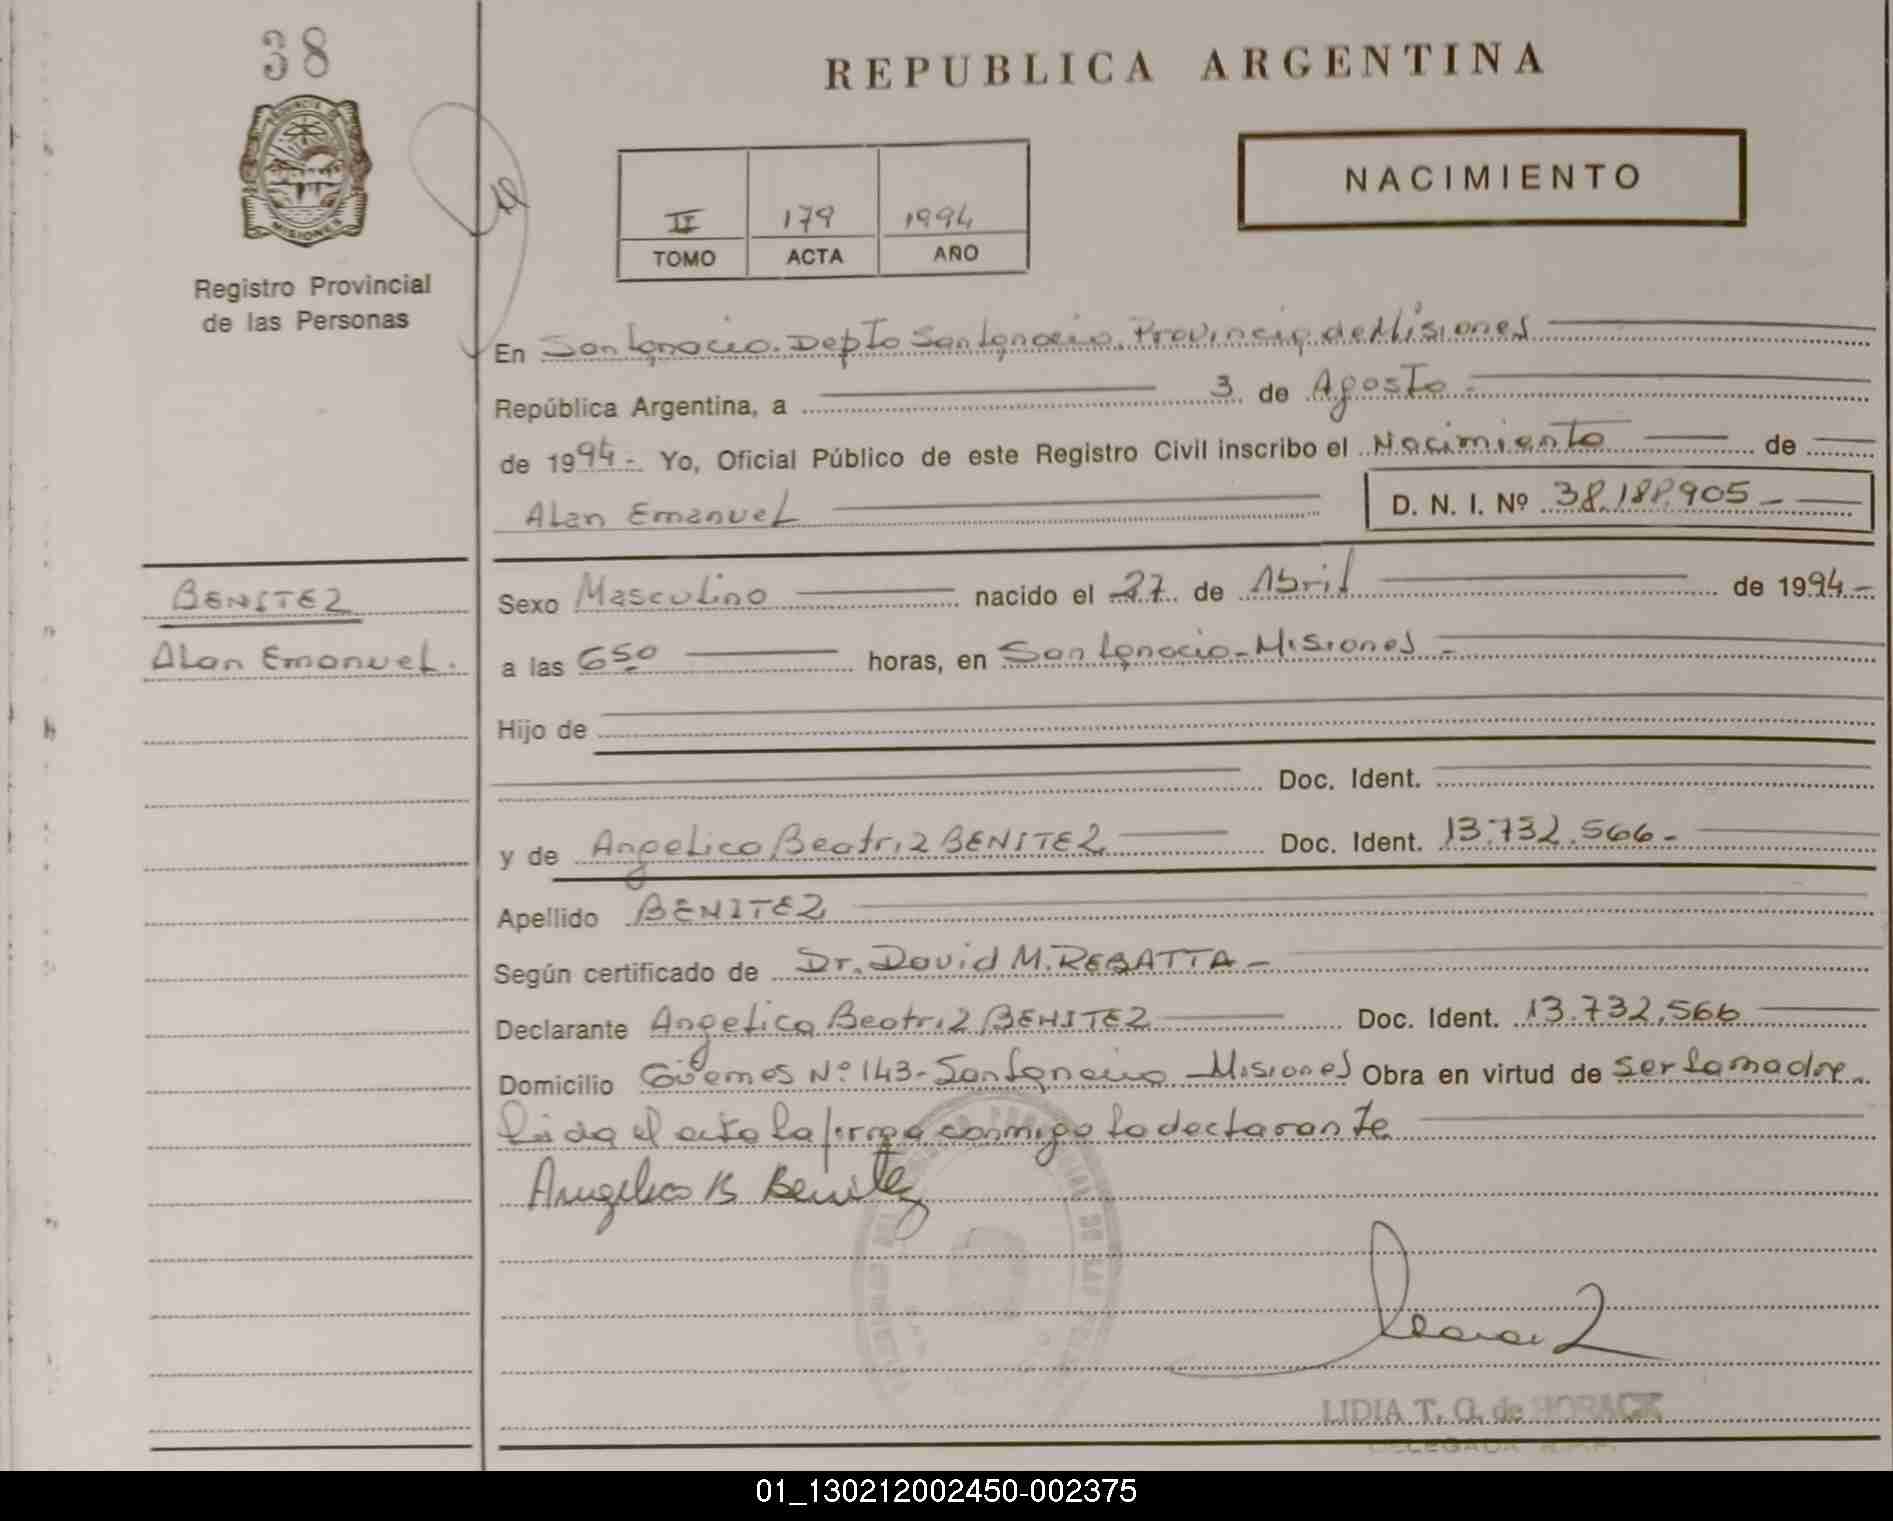 38
REPUBLICA ARGENTINA
NACIMIENTO
PROVINCIA DE
MISIONES
II 179 1994
TOMO ACTA AÑO
Registro Provincial
de las Personas
En San Ignacio. Depto San Ignacio. Provincia de Misiones
República Argentina, a 3 de Agosto -
de 1994- Yo, Oficial Público de este Registro Civil inscribo el Nacimiento de
Alan Emanuel D. N. I. Nº 38.188.905 -
BENITEZ
Alan Emanuel.
Sexo Masculino nacido el 27 de Abril de 1994-
a las 6 50 horas, en San Ignacio - Misiones -
Hijo de
Doc. Ident.
y de Angelica Beatriz BENITEZ Doc. Ident. 13.732.566-
Apellido BENITEZ
Según certificado de Dr. David M. REBATTA -
Declarante Angelica Beatriz BENITEZ Doc. Ident. 13.732.566
Domicilio Güemes Nº 143 - San Ignacio - Misiones Obra en virtud de ser la madre
Leida el acta la firma conmigo la declarante
Angelica B Benitez
LIDIA T. G. de HORACK
DELEGADA R.P.P.
01_130212002450-002375